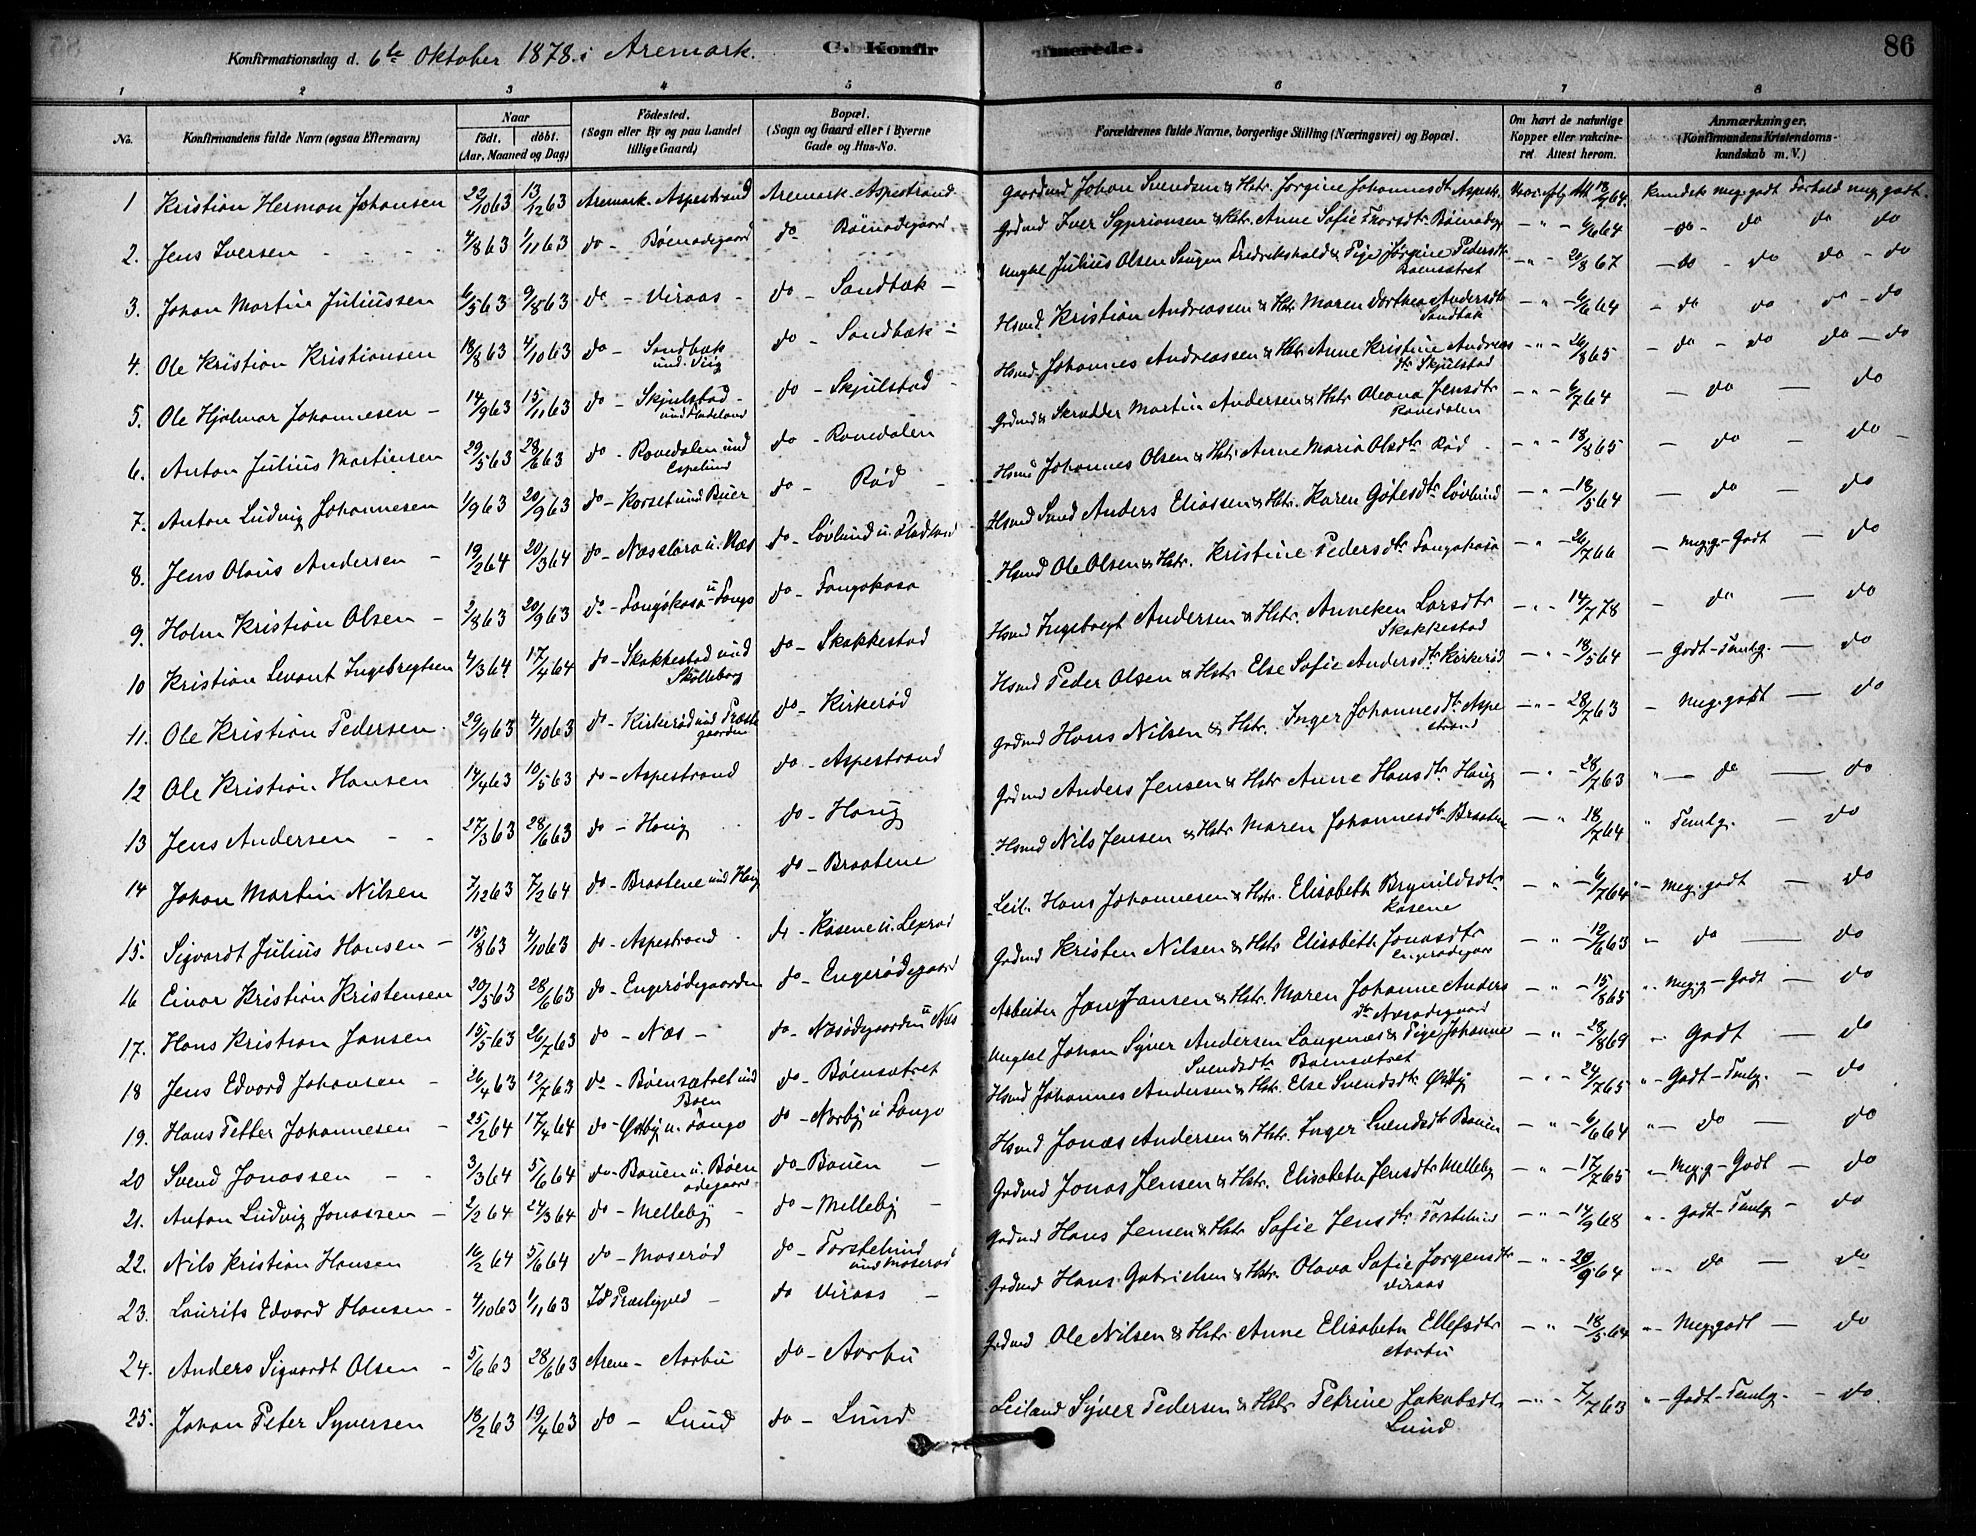 Konfirmationsdag d. 6te Oktober 1878 i Aremark. C. Konfirmerede. 86
1 2 3 4 5 6 7 8
No. Konfirmandens fulde Navn (ogsaa Efternavn) Naar født. døbt. (Aar, Maaned og Dag) Fødested. (Sogn eller By og paa Landet tillige Gaard) Bopæl. (Sogn og Gaard eller i Byerne Gade og Hus-No. Forældrenes fulde Navne, borgerlige Stilling (Næringsvei) og Bopæl. Om havt de naturlige Kopper eller vakcineret. Attest herom. Anmærkninger. (Konfirmandens Kristendomskundskab m. V.)
1 Kristian Herman Johansen 22/10 63 13/12 63 Aremark - Aspestrand Aremark - Aspestrand Gaardmd Johan Svendsen & Hstr. Jørgine Johannesdt. Aspestr. 64. Kundsk. meg. godt Forhold meg godt.
2. Jens Iversen 4/8 63 1/11 63 do - Bøenødegaard do Bøenødegaard. Grdmd Iver Syprionsen & Hstr. Anne Sofie Thorsdtr. Bøenødeg. 6/6 64 - do - do do do
3. Johan Martin Juliussen 6/5 63 9/8 63 do - Viraas - do - Sandbæk - Ungkl Julius Olsen Langen Fredrikshald & Pige Jørgine Pedersdtr. Boensætret 20/8 67 - do - do do - do
4. Ole Kristian Kristiansen 18/8 63 4/10 63 do - Sandbæk und. Viig do - Sandbæk - Hsmd. Kristian Andreassen & Hstr. Maren Dorthea Andersdtr. Sandbæk 6/6 64 - do do do - do
5. Ole Hjalmar Johannesen - 14/9 63 15/11 63 do - Skjulstad - und Fladeland do - Skjulstad - Hsmd. Johannes Andreassen & Hstr. Anne Kristine Andreasdtr. Skjulstad 26/8 65 - do - do do - do
6. Anton Julius Martinsen 29/5 63 28/6 63 do - Ravedalen und Espelund do - Ravedalen Grdmd & Skrædder Martin Andersen & Hstr. Oleana Jensdtr. Ravedalen 6/7 64 - do - do
7. Anton Ludvig Johannesen 1/9 63 20/9 63 do - Korset und Buer do - Rød - Hsmd Johannes Olsen & Hstr. Anne Maria Olsdtr. Rød - 18/8 65 - do - do -
8. Jens Olaus Andersen - 19/2 64 20/3 64 do - Næssløra u. Næs do - Løvlund u. Fladeland Hsmd Svend Anders Eliassen & Hstr. Karen Gøtesdtr. Løvlund 18/5 64 - do - do
9. Holm Kristian Olsen - 2/8 63 20/9 63 do - Fangekasa u - Fange do - Fangekasa Hsmd Ole Olsen & Hstr. Kristine Pedersdtr. Fangekasa 26/7 66 - Meg. g - Godt - do
10 Kristian Levant Ingebregtsen 4/3 64 17/4 64 do - Skakkestad und Skølleborg do - Skakkestad Hsmd Ingebregt Andersen & Hstr. Anneken Larsdtr. Skakkestad 14/7 78 - do - do
11. Ole Kristian Pedersen 29/9 63 4/10 63 do - Kirkerød und Præstegaarden do - Kirkerød Hsmd Peder Olsen & Hstr. Else Sofie Andersdtr. Kirkerød 18/5 64 - Godt - Temlg. - do
12 Ole Kristian Hansen 14/4 63 10/5 63 do - Aspestrand do - Aspestrand Grdmd Hans Nilsen & Hstr. Inger Johannesdtr. Aspestrand 28/7 63 - Meg. godt - do
13 Jens Andersen 27/3 63 28/6 63 do - Houg do - Houg Grdmd Anders Jensen & Hstr. Anne Hansdtr. Houg 28/7 63 " - do - do
14 Johan Martin Nilsen 7/12 63 7/2 64 do - Braatene und Houg do - Braatene Hsmd Nils Jensen & Hstr. Maren Johannesdtr. Braatene 18/7 64 " Temlg. - do
15. Sigvardt Julius Hansen - 15/8 63 4/10 63 do - Aspestrand do - Kasene u. Leprød Leil. Hans Johannesen & Hstr. Elisabeth Brynildsdtr. Kasene 6/7 64 - Meg. godt - do
16 Einar Kristian Kristensen 20/5 63 28/6 63 do - Engerødegaarden do - Engerødegaard Grdmd Kristen Nilsen & Hstr. Elisabeth Jonasdtr. Engerødegaar 12/6 63 " do - do
17. Hans Kristian Jansen 15/5 63 26/7 63 do - Næs - do - Næsødegaarden u Næs Arbeider Jan Jansen & Hstr. Maren Johanne Andersdtr. Næsødegaard 15/8 65 " Meg. g - Godt - do
18 Jens Edvard Johansen - 26/4 63 12/7 63 do - Bøensætret und Bøen do - Bøensætret Ungkl Johan Syver Andersen Langenæs & Pige Johanne Svendsdtr. Bøensætret 28/8 69 " Godt - do
19. Hans Petter Johannesen - 25/2 64 17/4 64 do - Østby u. Fange do - Nørby u Fange Hsmd Johannes Andersen & Hstr. Else Svendsdtr. Østby 24/7 65 " Godt - Temlg. - do
20 Svend Jonassen - - 3/3 64 5/6 64 do - Bauen u. Bøenødegaard do - Bauen - Hsmd Jonas Andersen & Hstr. Inger Svendsdtr. Bauen 6/6 64 " do - do
21. Anton Ludvig Jonassen - 2/2 64 27/3 64 do - Melleby - do - Melleby - Grdmd Jonas Jensen & Hstr. Elisabeth Jensdtr. Melleby 17/7 65 " Meg. g - Godt - do
22. Nils Kristian Hansen 16/2 64 5/6 64 do - Moserød do - Torstelund und Moserød Grdmd Hans Jensen & Hstr. Sofie Jensdtr. Torstelund 14/9 68 " Godt - Temlg - do
23. Laurits Edvard Hansen - 4/10 63 1/11 63 Id Præstegjeld - do Viraas - Grdmd Hans Gabrielsen & Hstr. Olava Sofie Jørgensdtr. Viraas 29/9 64 " do - do
24. Anders Sigvardt Olsen - 5/6 63 28/6 63 Arem - Aarbu do - Aarbu Grdmd Ole Nilsen & Hstr. Anne Elisabeth Ellefsdtr. Aarbu 18/5 64 " Meg. godt - do
25. Johan Peter Syversen 18/2 63 19/4 63 do - Lund do - Lund Leiland Syver Pedersen & Hstr. Petrine Jakobsdtr. Lund 7/7 63 " Godt - Temlg. - do